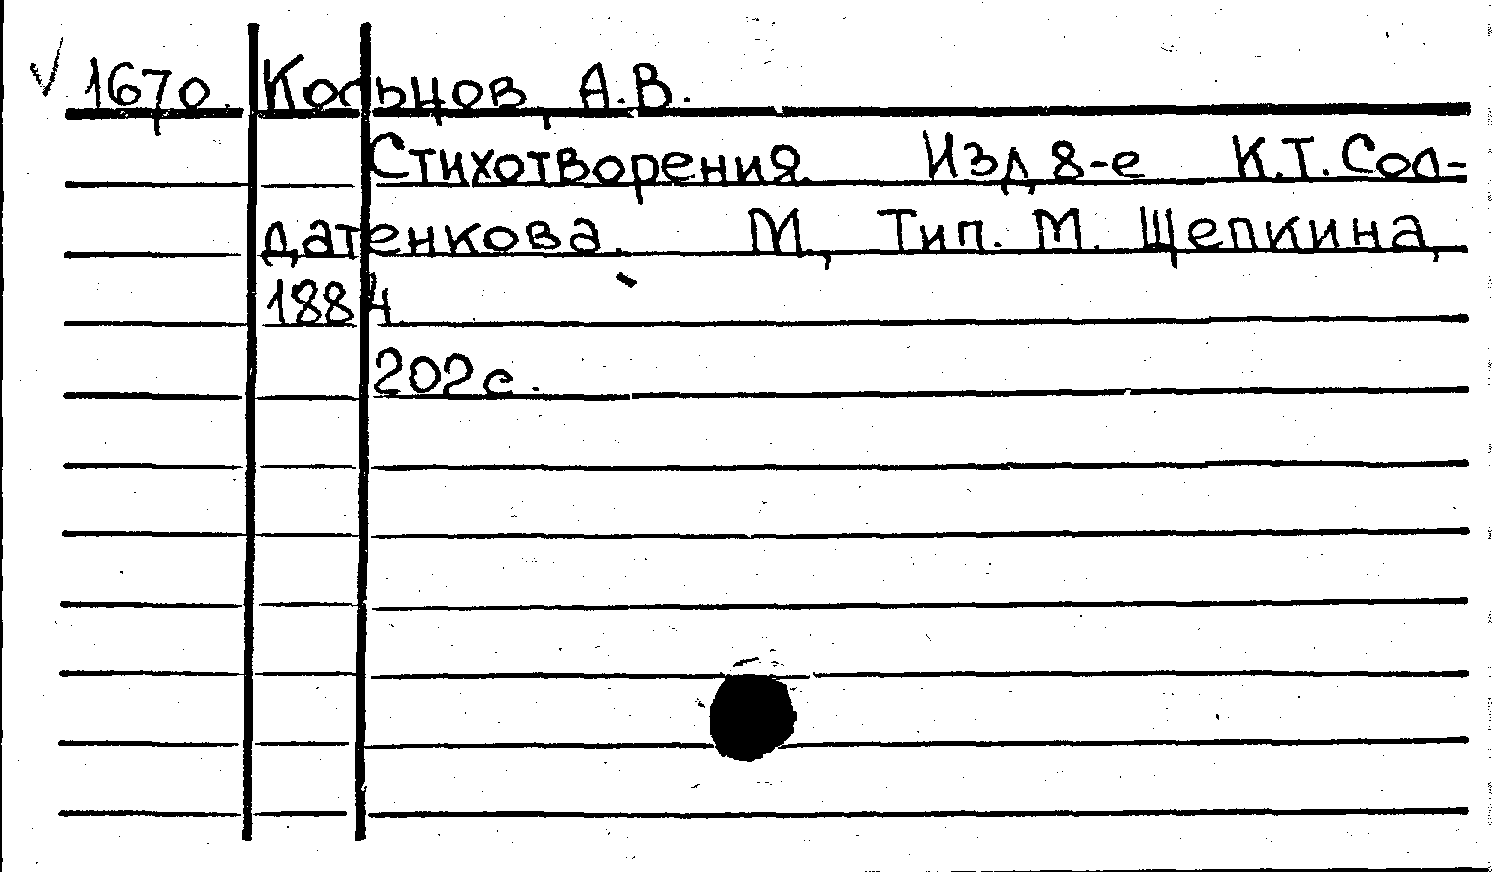 √ 1670. Кольцов, А.В.
Стихотворения. Изд. 8-е К.Т. Сол-
датенкова. М., Тип. М. Щепкина,
1884
202 с.